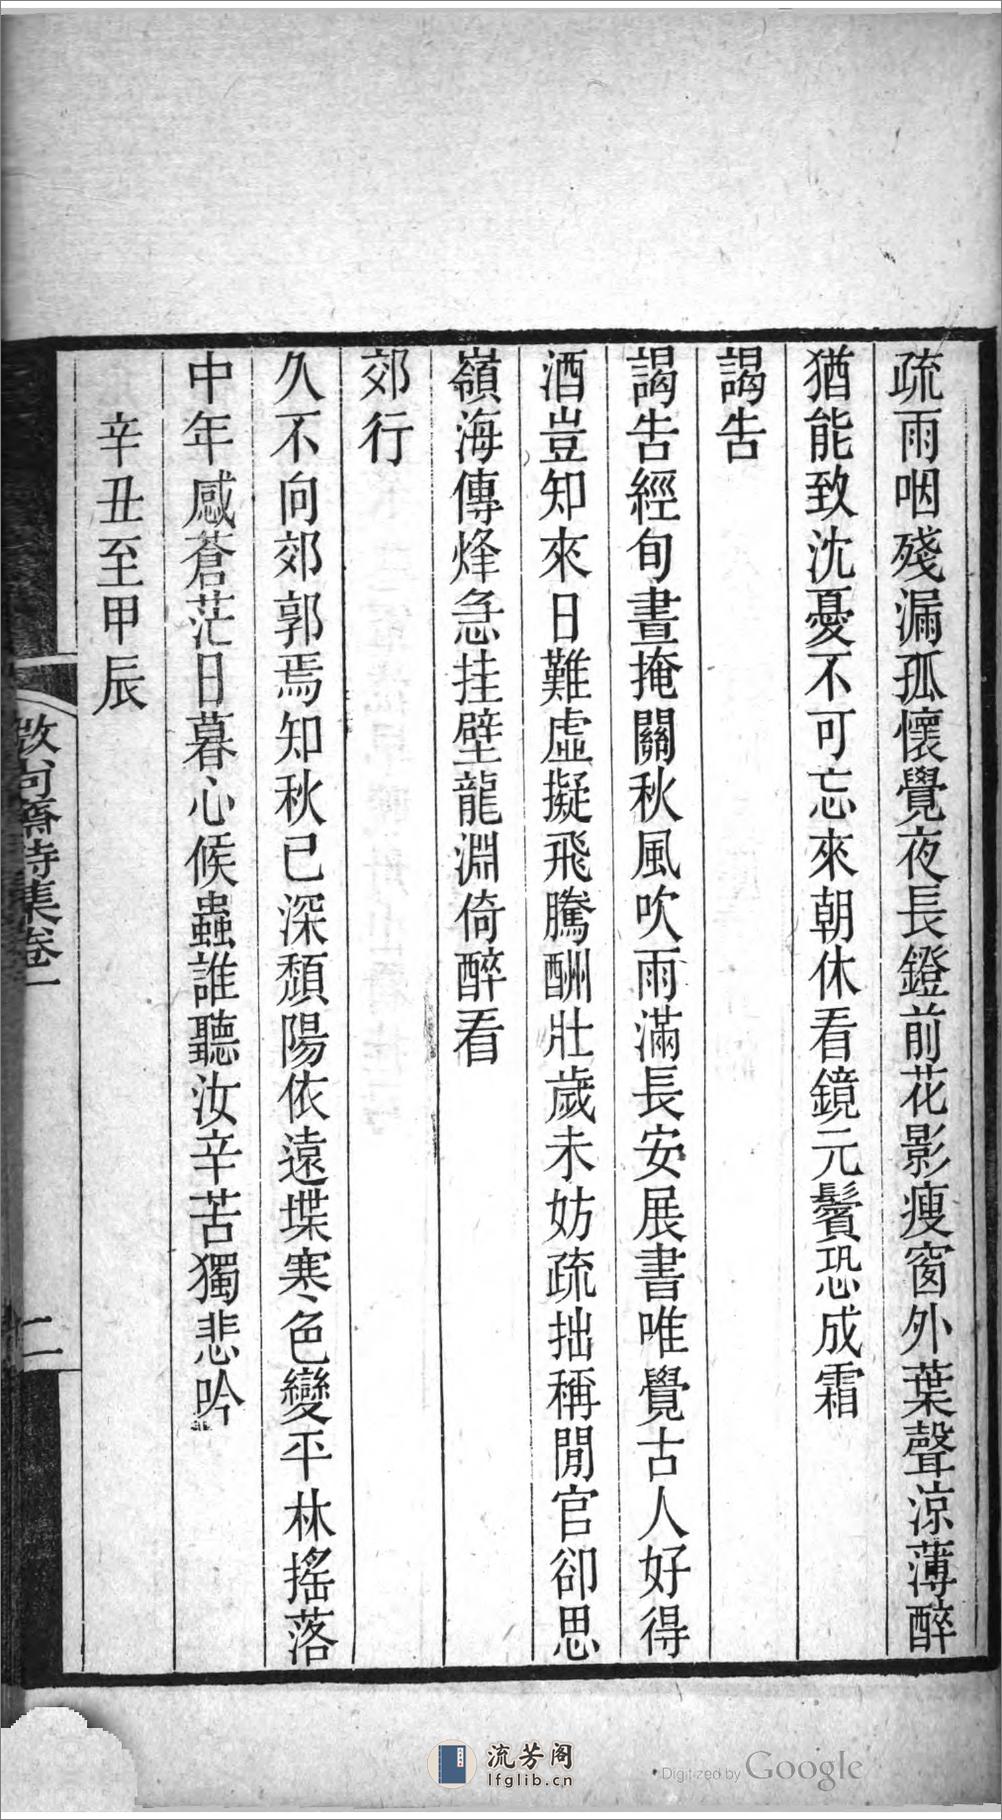 疏雨咽殘漏孤懷覺夜長鐙前花影瘦窗外葉聲涼薄醉
猶能致沈憂不可忘來朝休看鏡元鬢恐成霜
謁告
謁告經旬晝掩關秋風吹雨滿長安展書唯覺古人好得
酒豈知來日難虛擬飛騰酬壯歲未妨疏拙稱閒官卻思
嶺海傳烽急挂壁龍淵倚醉看
郊行
久不向郊郭焉知秋已深頹陽依遠堞寒色變平林搖落
中年感蒼茫日暮心候蟲誰聽汝辛苦獨悲吟
辛丑至甲辰
齋詩集卷一
二
流芳阁
lfglib.cn
Digitized by Google